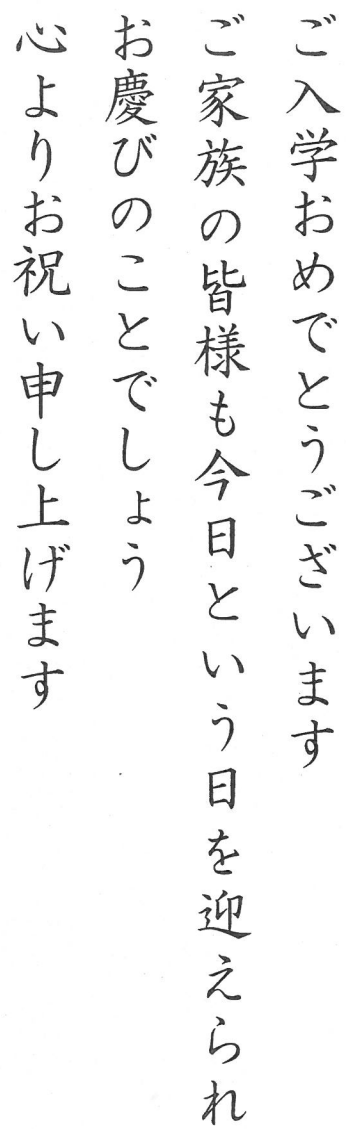 ご入学おめでとうございます
ご家族の皆様も今日という日を迎えられ
お慶びのことでしょう
心よりお祝い申し上げます